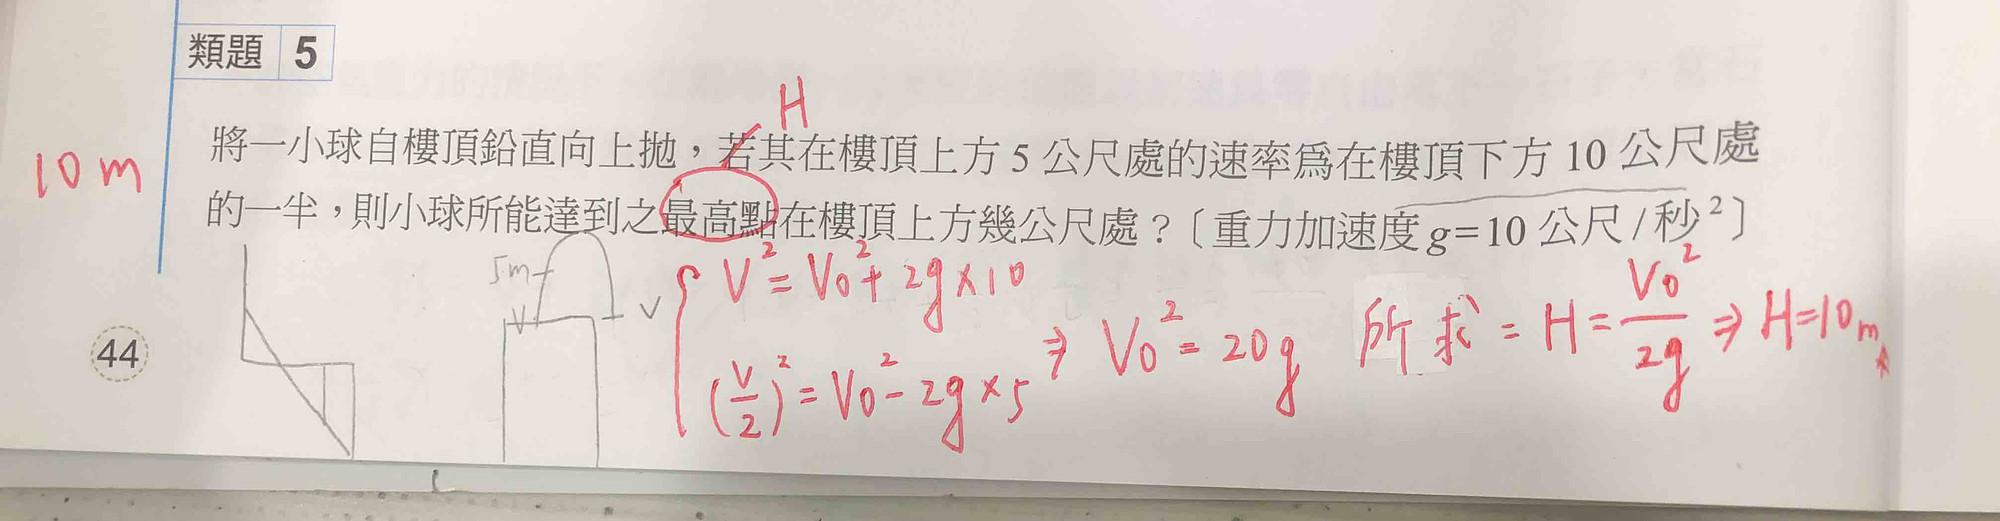 類題 5
H
將一小球自樓頂鉛直向上拋，若其在樓頂上方 5 公尺處的速率為在樓頂下方 10 公尺處
10 m
的一半，則小球所能達到之最高點在樓頂上方幾公尺處？〔重力加速度 g=10 公尺/秒²〕
5m
V
V
V² = V₀² + 2g×10
(V/2)² = V₀² - 2g×5
⇒ V₀² = 20g
所求 = H = V₀²/2g ⇒ H=10m
44